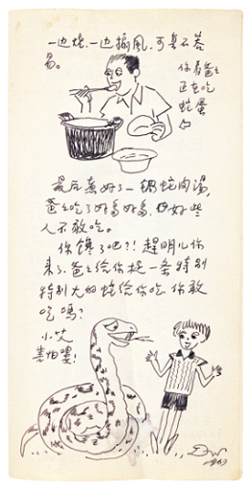 一边烧、一边搧風,可真不容
易。
你看爸々
正在吃
蛇蛋
最后煮好了一锅蛇肉湯,
爸々吃了好多好多,但好些
人不敢吃。
你馋了吧?!趕明儿你
来了,爸々给你捉一条特别
特别大的蛇给你吃,你敢
吃嗎?
小艾
害怕嘍!
1969